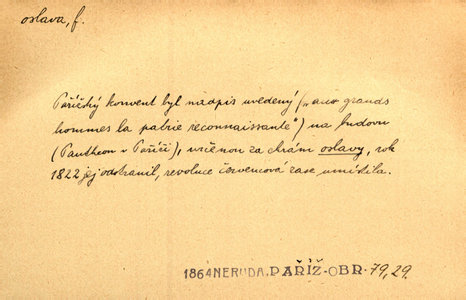 oslava, f.
Pařížský konvent byl nádpis uvedený („aux grands
hommes la patrie reconnaissante“) na budovu
(Pantheon v Paříži), určenou za chrám oslavy, rok
1822 jej odstranil, revoluce červencová zase umístila.
1864 NERUDA, PAŘÍŽ-OBR. 79, 29.